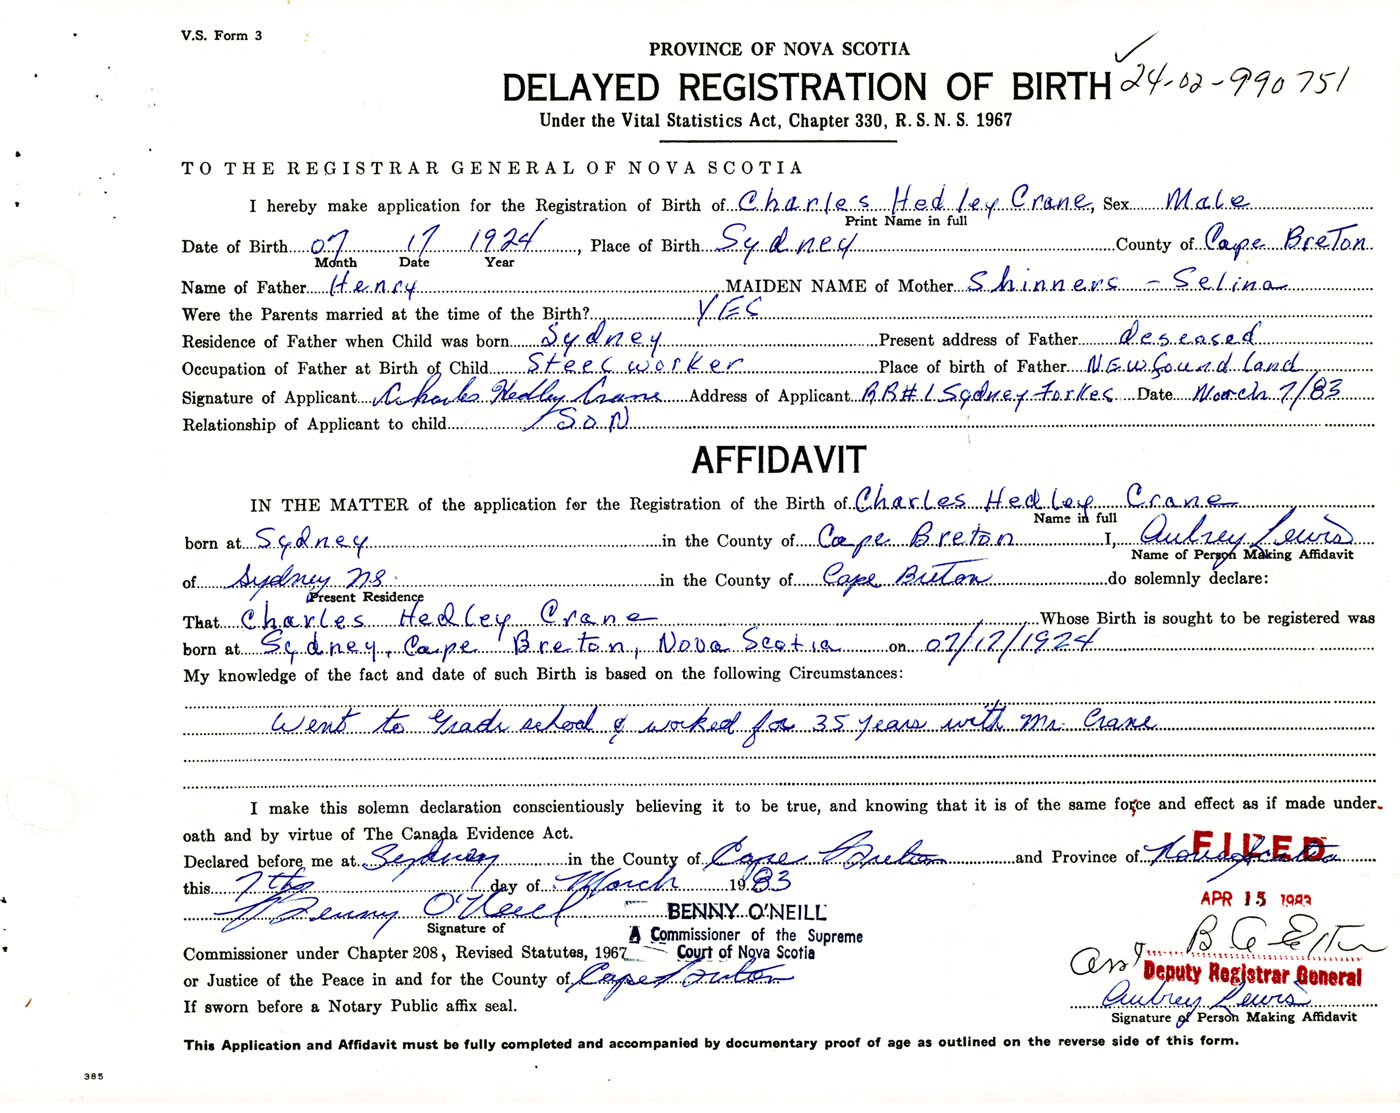 V.S. Form 3
PROVINCE OF NOVA SCOTIA
DELAYED REGISTRATION OF BIRTH 24-02-990751
Under the Vital Statistics Act, Chapter 330, R.S.N.S. 1967
TO THE REGISTRAR GENERAL OF NOVA SCOTIA
I hereby make application for the Registration of Birth of Charles Hedley Crane, Sex Male
Print Name in full
Date of Birth 07 17 1924, Place of Birth Sydney County of Cape Breton
Month Date Year
Name of Father Henry MAIDEN NAME of Mother Shinners - Selina
Were the Parents married at the time of the Birth? YES
Residence of Father when Child was born Sydney Present address of Father deseased
Occupation of Father at Birth of Child Steel worker Place of birth of Father Newfoundland
Signature of Applicant Charles Hedley Crane Address of Applicant RR#1 Sydney Forkes Date March 7/83
Relationship of Applicant to child SON
AFFIDAVIT
IN THE MATTER of the application for the Registration of the Birth of Charles Hedley Crane
Name in full
born at Sydney in the County of Cape Breton I, Aubrey Lewis
Name of Person Making Affidavit
of Sydney N.S. in the County of Cape Breton do solemnly declare:
Present Residence
That Charles Hedley Crane Whose Birth is sought to be registered was
born at Sydney, Cape Breton, Nova Scotia on 07/17/1924
My knowledge of the fact and date of such Birth is based on the following Circumstances:
Went to Grade school & worked for 35 years with Mr. Crane
I make this solemn declaration conscientiously believing it to be true, and knowing that it is of the same force and effect as if made under
oath and by virtue of The Canada Evidence Act.
Declared before me at Sydney in the County of Cape Breton and Province of Nova Scotia
FILED
this 7th day of March 1983
APR 15 1983
Benny O'Neill BENNY O'NEILL
Signature of
A Commissioner of the Supreme
Court of Nova Scotia
Commissioner under Chapter 208, Revised Statutes, 1967
or Justice of the Peace in and for the County of Cape Breton
Asst Deputy Registrar General
If sworn before a Notary Public affix seal.
Aubrey Lewis
Signature of Person Making Affidavit
This Application and Affidavit must be fully completed and accompanied by documentary proof of age as outlined on the reverse side of this form.
385